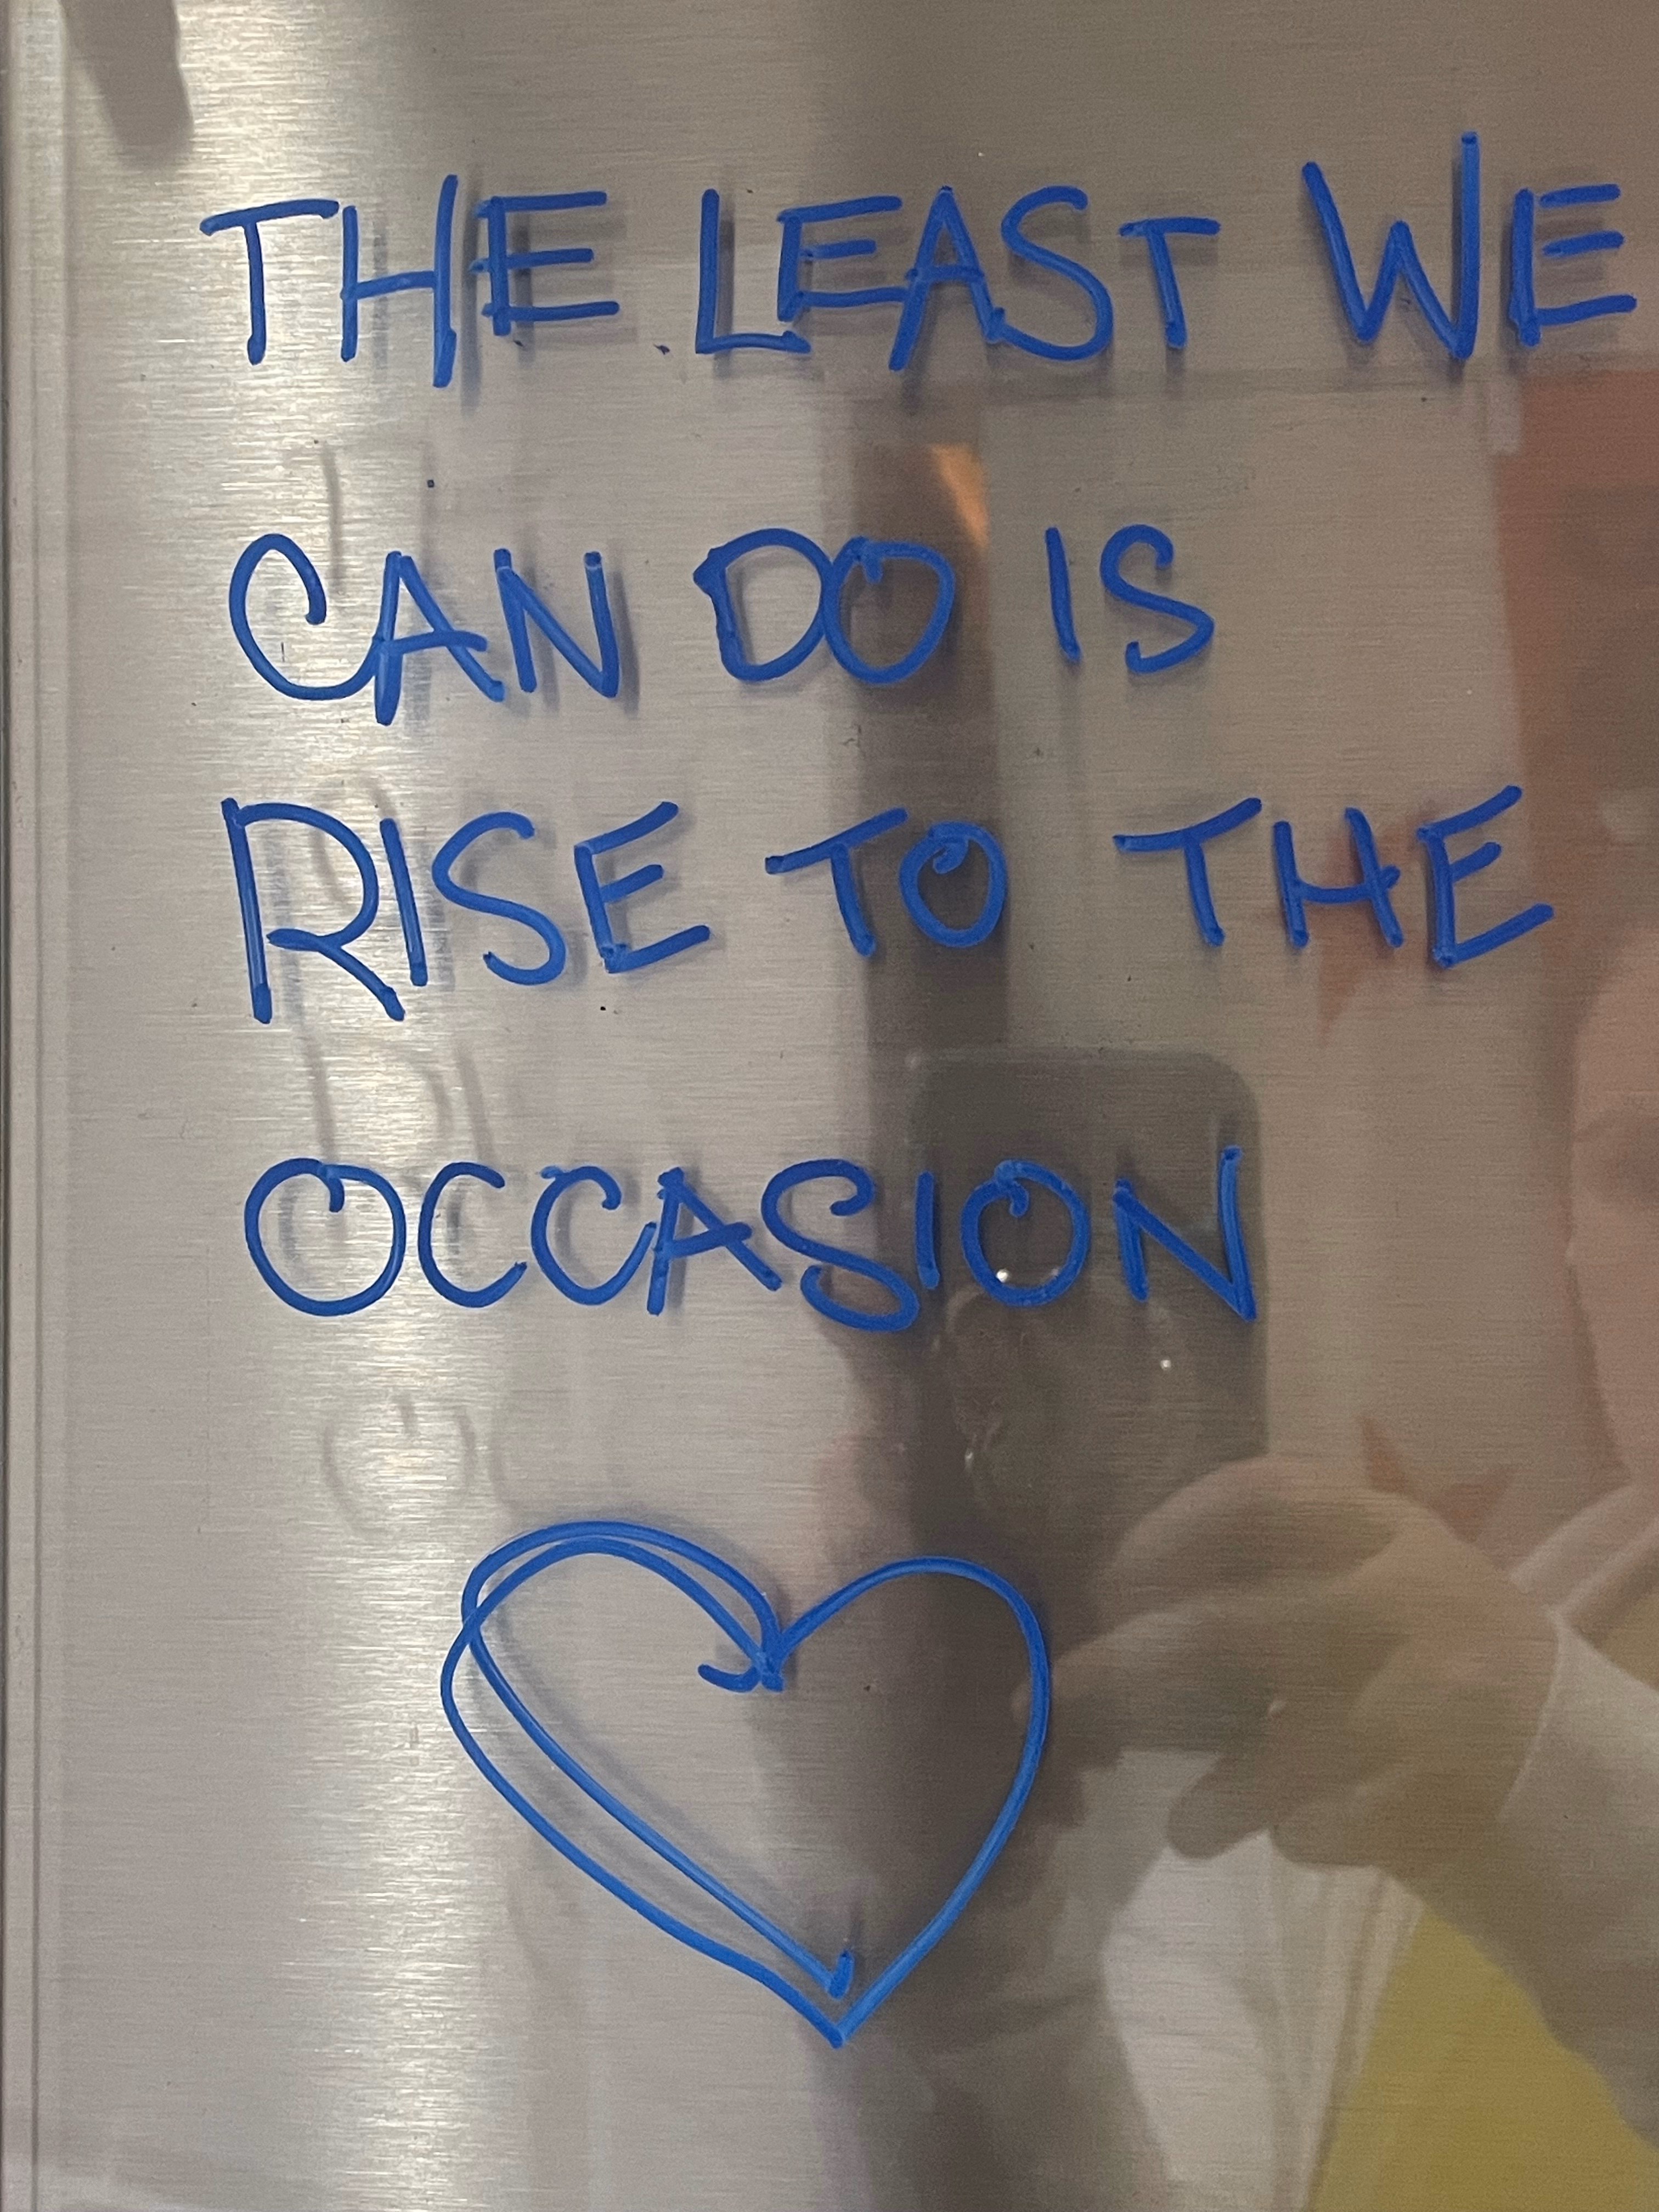 THE LEAST WE
CAN DO IS
RISE TO THE
OCCASION